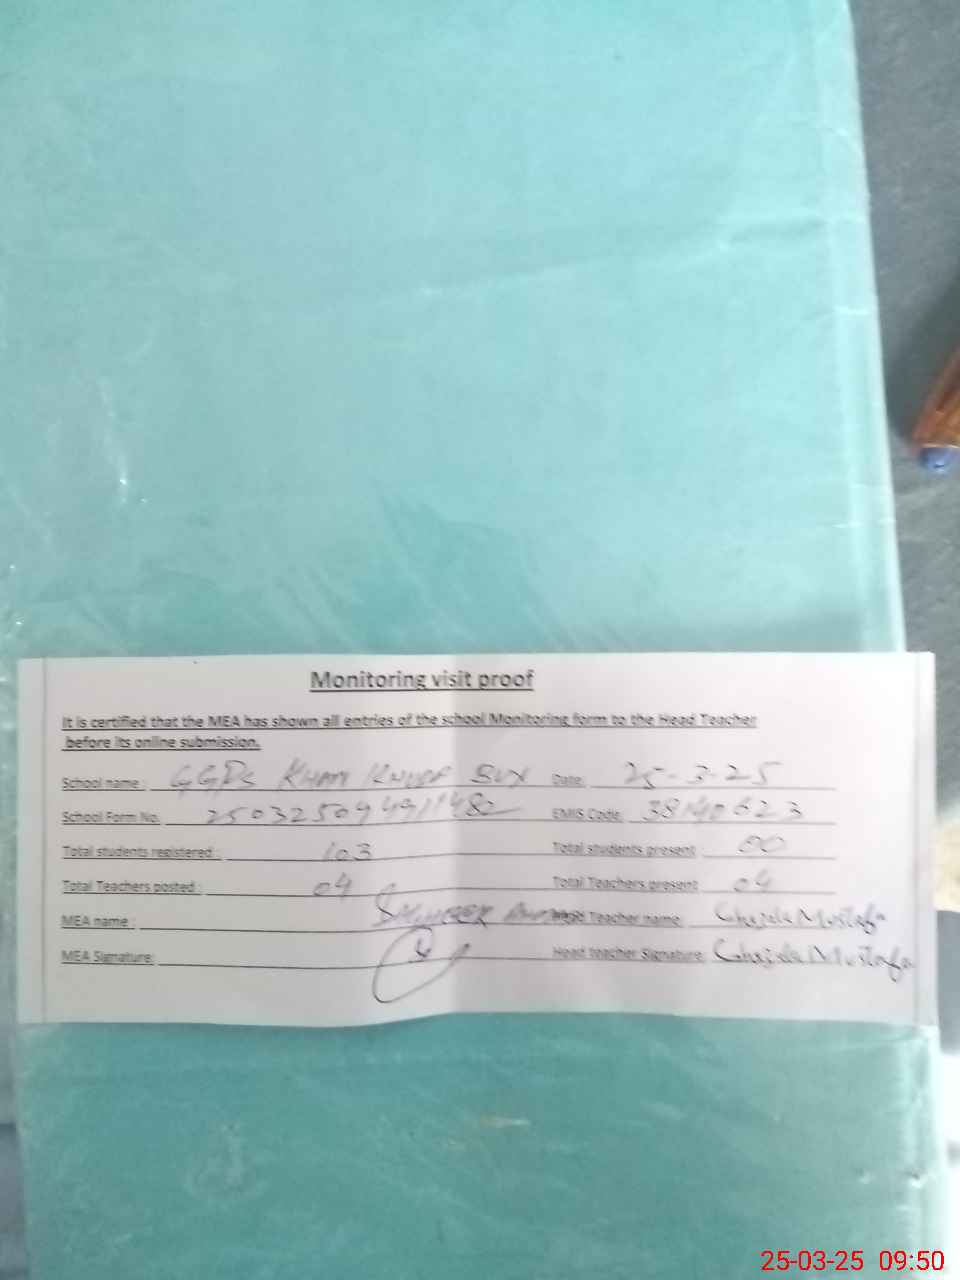 Monitoring visit proof
It is certified that the MEA has shown all entries of the school Monitoring form to the Head Teacher
before its online submission.
School name : GGPS KHAN Date: 25-3-25
School Form No. EMIS Code
Total students registered : 103 Total students present : 00
Total Teachers posted : 04 Total Teachers present 04
MEA name : Head Teacher name: Mustafa
MEA Signature: Head teacher Signature: Mustafa
25-03-25 09:50